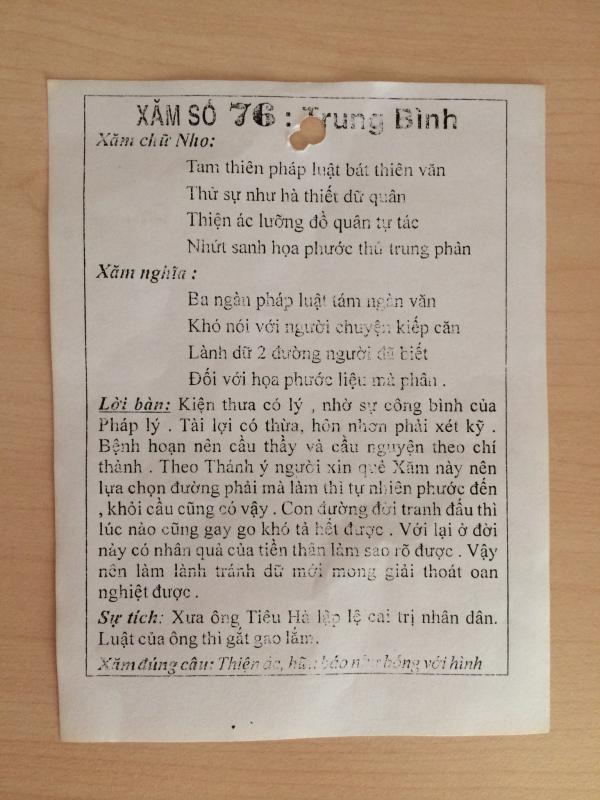 XĂM SỐ 76 : Trung Bình
Xăm chữ Nho:
Tam thiên pháp luật bát thiên văn
Thử sự như hà thiết dữ quân
Thiện ác lưỡng đồ quân tự tác
Nhứt sanh họa phước thử trung phân
Xăm nghĩa :
Ba ngàn pháp luật tám ngàn văn
Khó nói với người chuyện kiếp căn
Lành dữ 2 đường người đã biết
Đối với họa phước liệu mà phân .
Lời bàn: Kiện thưa có lý , nhờ sự công bình của
Pháp lý . Tài lợi có thừa, hôn nhơn phải xét kỹ .
Bệnh hoạn nên cầu thầy và cầu nguyện theo chí
thành . Theo Thánh ý người xin quẻ Xăm này nên
lựa chọn đường phải mà làm thì tự nhiên phước đến
, khỏi cầu cũng có vậy . Con đường đời tranh đấu thì
lúc nào cũng gay go khó tả hết được . Với lại ở đời
này có nhân quả của tiền thân làm sao rõ được . Vậy
nên làm lành tránh dữ mới mong giải thoát oan
nghiệt được .
Sự tích: Xưa ông Tiêu Hà lập lệ cai trị nhân dân.
Luật của ông thi gắt gao lắm.
Xăm đúng câu: Thiện ác, hữu báo như bóng với hình